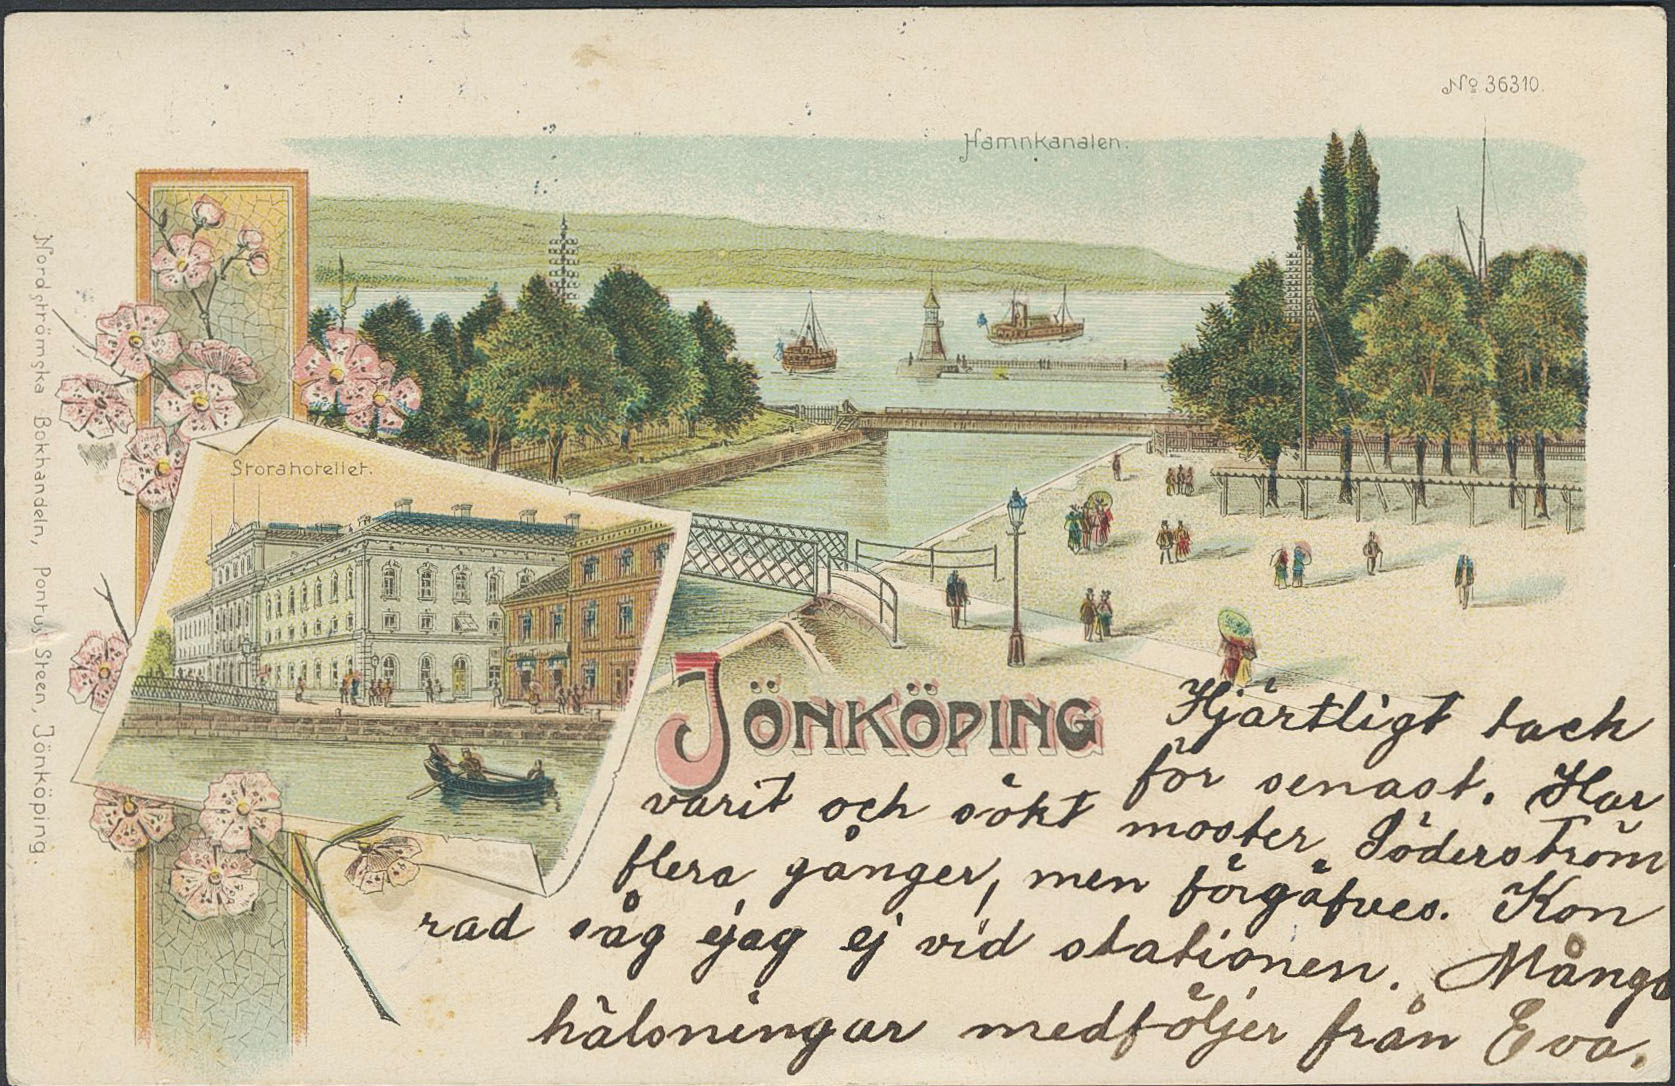 No 36310.
Hamnkanalen.
Storahotellet.
Nordströmska Bokhandeln, Pontus Steen, Jönköping.
JÖNKÖPING
Hjärtligt tack
för senast. Har
varit och sökt moster Söderström
flera gånger, men förgäfves. Kon
rad såg ejag ej vid stationen. Många
hälsningar medföljer från Eva.